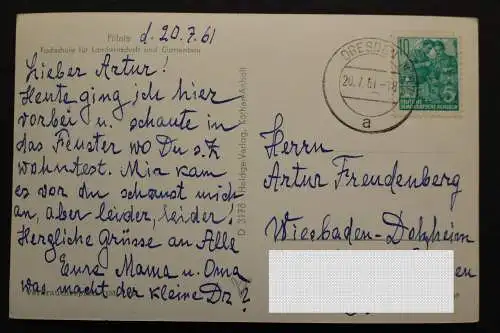 Pillnitz d. 20.7.61
Fachschule für Landwirtschaft und Gartenbau
Lieber Artur!
Heute ging ich hier
vorbei u. schaute in
das Fenster wo Du s.Z.
wohntest. Mir kam
es vor du schaust mich
an, aber leider, leider!
Herzliche Grüsse an Alle
Eure Mama u. Oma
was macht der kleine Dr?
D 3178 Heldge-Verlag, Köthen-Anhalt
DRESDEN
20.7.61-18
a
10
DEUTSCHE DEMOKRATISCHE REPUBLIK
Herrn
Artur Freudenberg
Wiesbaden-Dotzheim